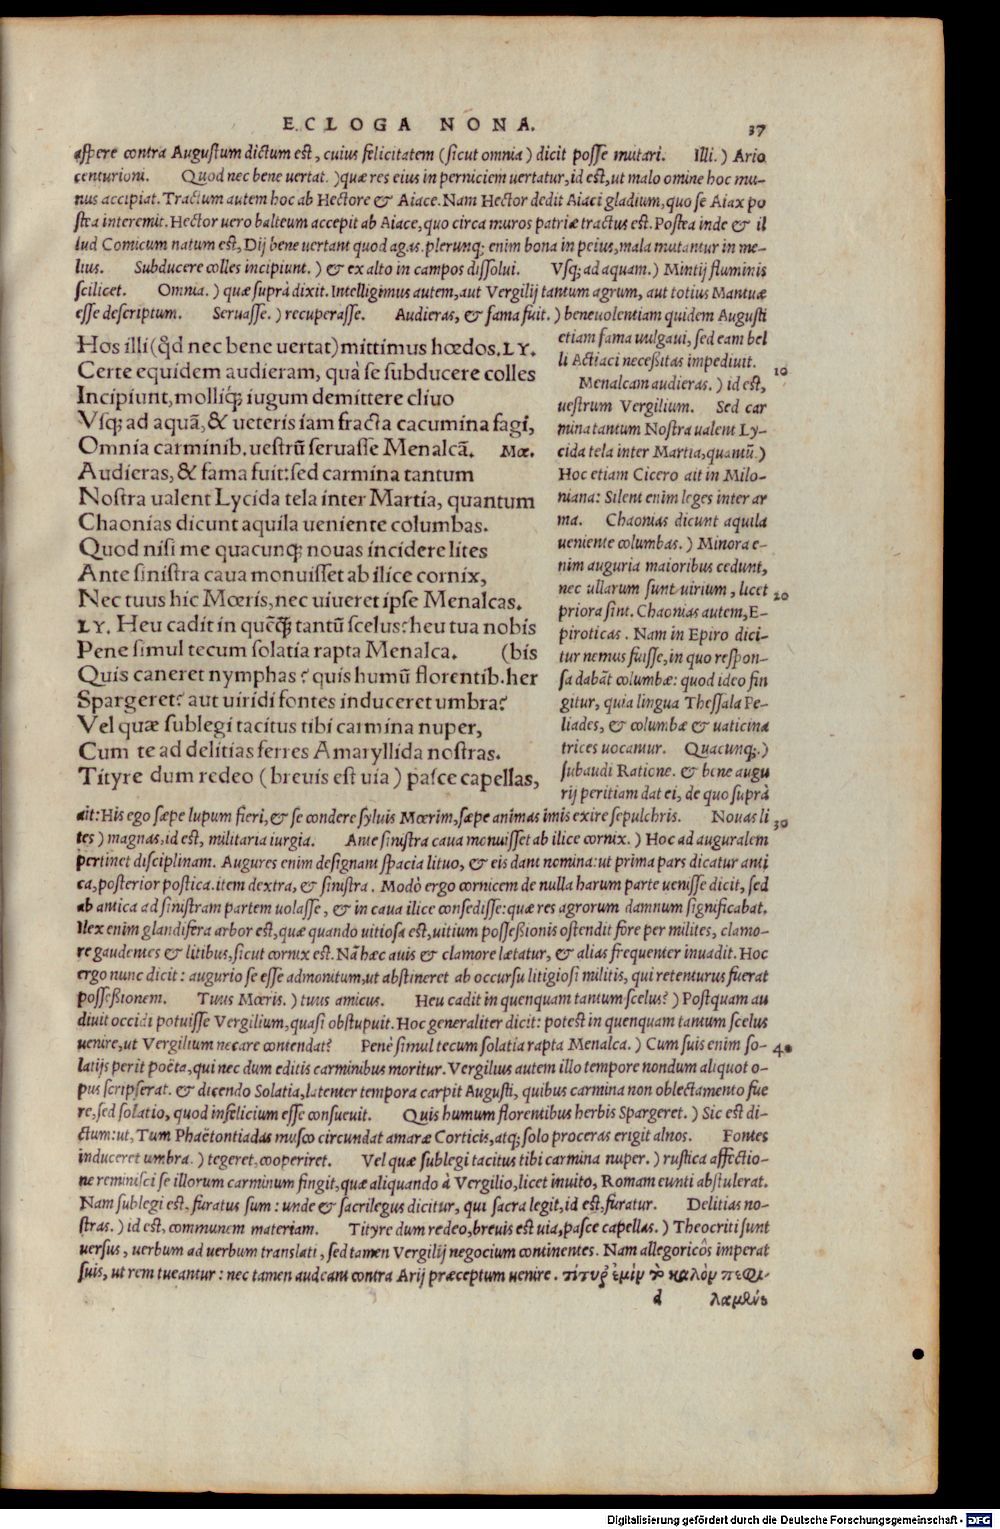 ECLOGA NONA.
37
aspere contra Augustum dictum est, cuius felicitatem (sicut omnia) dicit posse mutari. Illi.) Ario
centurioni. Quod nec bene uertat.) quæ res eius in perniciem uertatur, id est, ut malo omine hoc mu-
nus accipiat. Tractum autem hoc ab Hectore & Aiace. Nam Hector dedit Aiaci gladium, quo se Aiax po
stea interemit. Hector uero balteum accepit ab Aiace, quo circa muros patriæ tractus est. Postea inde & il
lud Comicum natum est, Dij bene uertant quod agas. plerunq; enim bona in peius, mala mutantur in me-
lius. Subducere colles incipiunt.) & ex alto in campos dissolui. Vsq; ad aquam.) Mintij fluminis
scilicet. Omnia.) quæ suprà dixit. Intelligimus autem, aut Vergilij tantum agrum, aut totius Mantuæ
esse descriptum. Seruasse.) recuperasse. Audieras, & fama fuit.) beneuolentiam quidem Augusti
Hos illi (qd nec bene uertat) mittimus hœdos. LY.
Certe equidem audieram, quà se subducere colles
Incipiunt, molliq́; iugum demittere cliuo
Vsq; ad aquā, & ueteris iam fracta cacumina fagi,
Omnia carminib. uestrū seruasse Menalcā. Mœ.
Audieras, & fama fuit: sed carmina tantum
Nostra ualent Lycida tela inter Martia, quantum
Chaonias dicunt aquila ueniente columbas.
Quod nisi me quacunq; nouas incidere lites
Ante sinistra caua monuisset ab ilice cornix,
Nec tuus hic Mœris, nec uiueret ipse Menalcas.
LY. Heu cadit in quēq̃; tantū scelus? heu tua nobis
Pene simul tecum solatia rapta Menalca. (bis
Quis caneret nymphas? quis humū florentib. her
Spargeret? aut uiridi fontes induceret umbra?
Vel quæ sublegi tacitus tibi carmina nuper,
Cum te ad delitias ferres Amaryllida nostras.
Tityre dum redeo (breuis est uia) pasce capellas,
etiam fama uulgaui, sed eam bel
li Actiaci neceßitas impediuit.
10
Menalcam audieras.) id est,
uestrum Vergilium. Sed car
mina tantum Nostra ualent Ly-
cida tela inter Martia, quantū.)
Hoc etiam Cicero ait in Milo-
niana: Silent enim leges inter ar
ma. Chaonias dicunt aquila
ueniente columbas.) Minora e-
nim auguria maioribus cedunt,
nec ullarum sunt uirium, licet
20
priora sint. Chaonias autem, E-
piroticas. Nam in Epiro dici-
tur nemus fuisse, in quo respon-
sa dabāt columbæ: quod ideo fin
gitur, quia lingua Thessala Pe-
liades, & columbæ & uaticina
trices uocantur. Quacunq;.)
subaudi Ratione. & bene augu
rij peritiam dat ei, de quo suprà
ait: His ego sæpe lupum fieri, & se condere syluis Mœrim, sæpe animas imis exire sepulchris. Nouas li
30
tes) magnas, id est, militaria iurgia. Ante sinistra caua monuisset ab ilice cornix.) Hoc ad auguralem
pertinet disciplinam. Augures enim designant spacia lituo, & eis dant nomina: ut prima pars dicatur anti
ca, posterior postica. item dextra, & sinistra. Modò ergo cornicem de nulla harum parte uenisse dicit, sed
ab antica ad sinistram partem uolasse, & in caua ilice consedisse: quæ res agrorum damnum significabat.
Ilex enim glandifera arbor est, quæ quando uitiosa est, uitium possessionis ostendit fore per milites, clamo-
re gaudentes & litibus, sicut cornix est. Nā hæc auis & clamore lætatur, & alias frequenter inuadit. Hoc
ergo nunc dicit: augurio se esse admonitum, ut abstineret ab occursu litigiosi militis, qui retenturus fuerat
posseßionem. Tuus Mœris.) tuus amicus. Heu cadit in quenquam tantum scelus?) Postquam au
diuit occidi potuisse Vergilium, quasi obstupuit. Hoc generaliter dicit: potest in quenquam tantum scelus
uenire, ut Vergilium necare contendat? Penè simul tecum solatia rapta Menalca.) Cum suis enim so-
40
latijs perit poëta, qui nec dum editis carminibus moritur. Vergilius autem illo tempore nondum aliquot o-
pus scripserat. & dicendo Solatia, latenter tempora carpit Augusti, quibus carmina non oblectamento fue
re, sed solatio, quod infelicium esse consueuit. Quis humum florentibus herbis Spargeret.) Sic est di-
ctum: ut, Tum Phaëtontiadas musco circundat amaræ Corticis, atq; solo proceras erigit alnos. Fontes
induceret umbra.) tegeret, cooperiret. Vel quæ sublegi tacitus tibi carmina nuper.) rustica affectio-
ne reminisci se illorum carminum fingit, quæ aliquando à Vergilio, licet inuito, Romam eunti abstulerat.
Nam sublegi est, furatus sum: unde & sacrilegus dicitur, qui sacra legit, id est, furatur. Delitias no-
stras.) id est, communem materiam. Tityre dum redeo, breuis est uia, pasce capellas.) Theocriti sunt
uersus, uerbum ad uerbum translati, sed tamen Vergilij negocium continentes. Nam allegoricῶs imperat
suis, ut rem tueantur: nec tamen audeant contra Arij præceptum uenire. τίτυρ' ἐμὶν τὸ καλὸν πεφι-
d λαμμένε
Digitalisierung gefördert durch die Deutsche Forschungsgemeinschaft - DFG